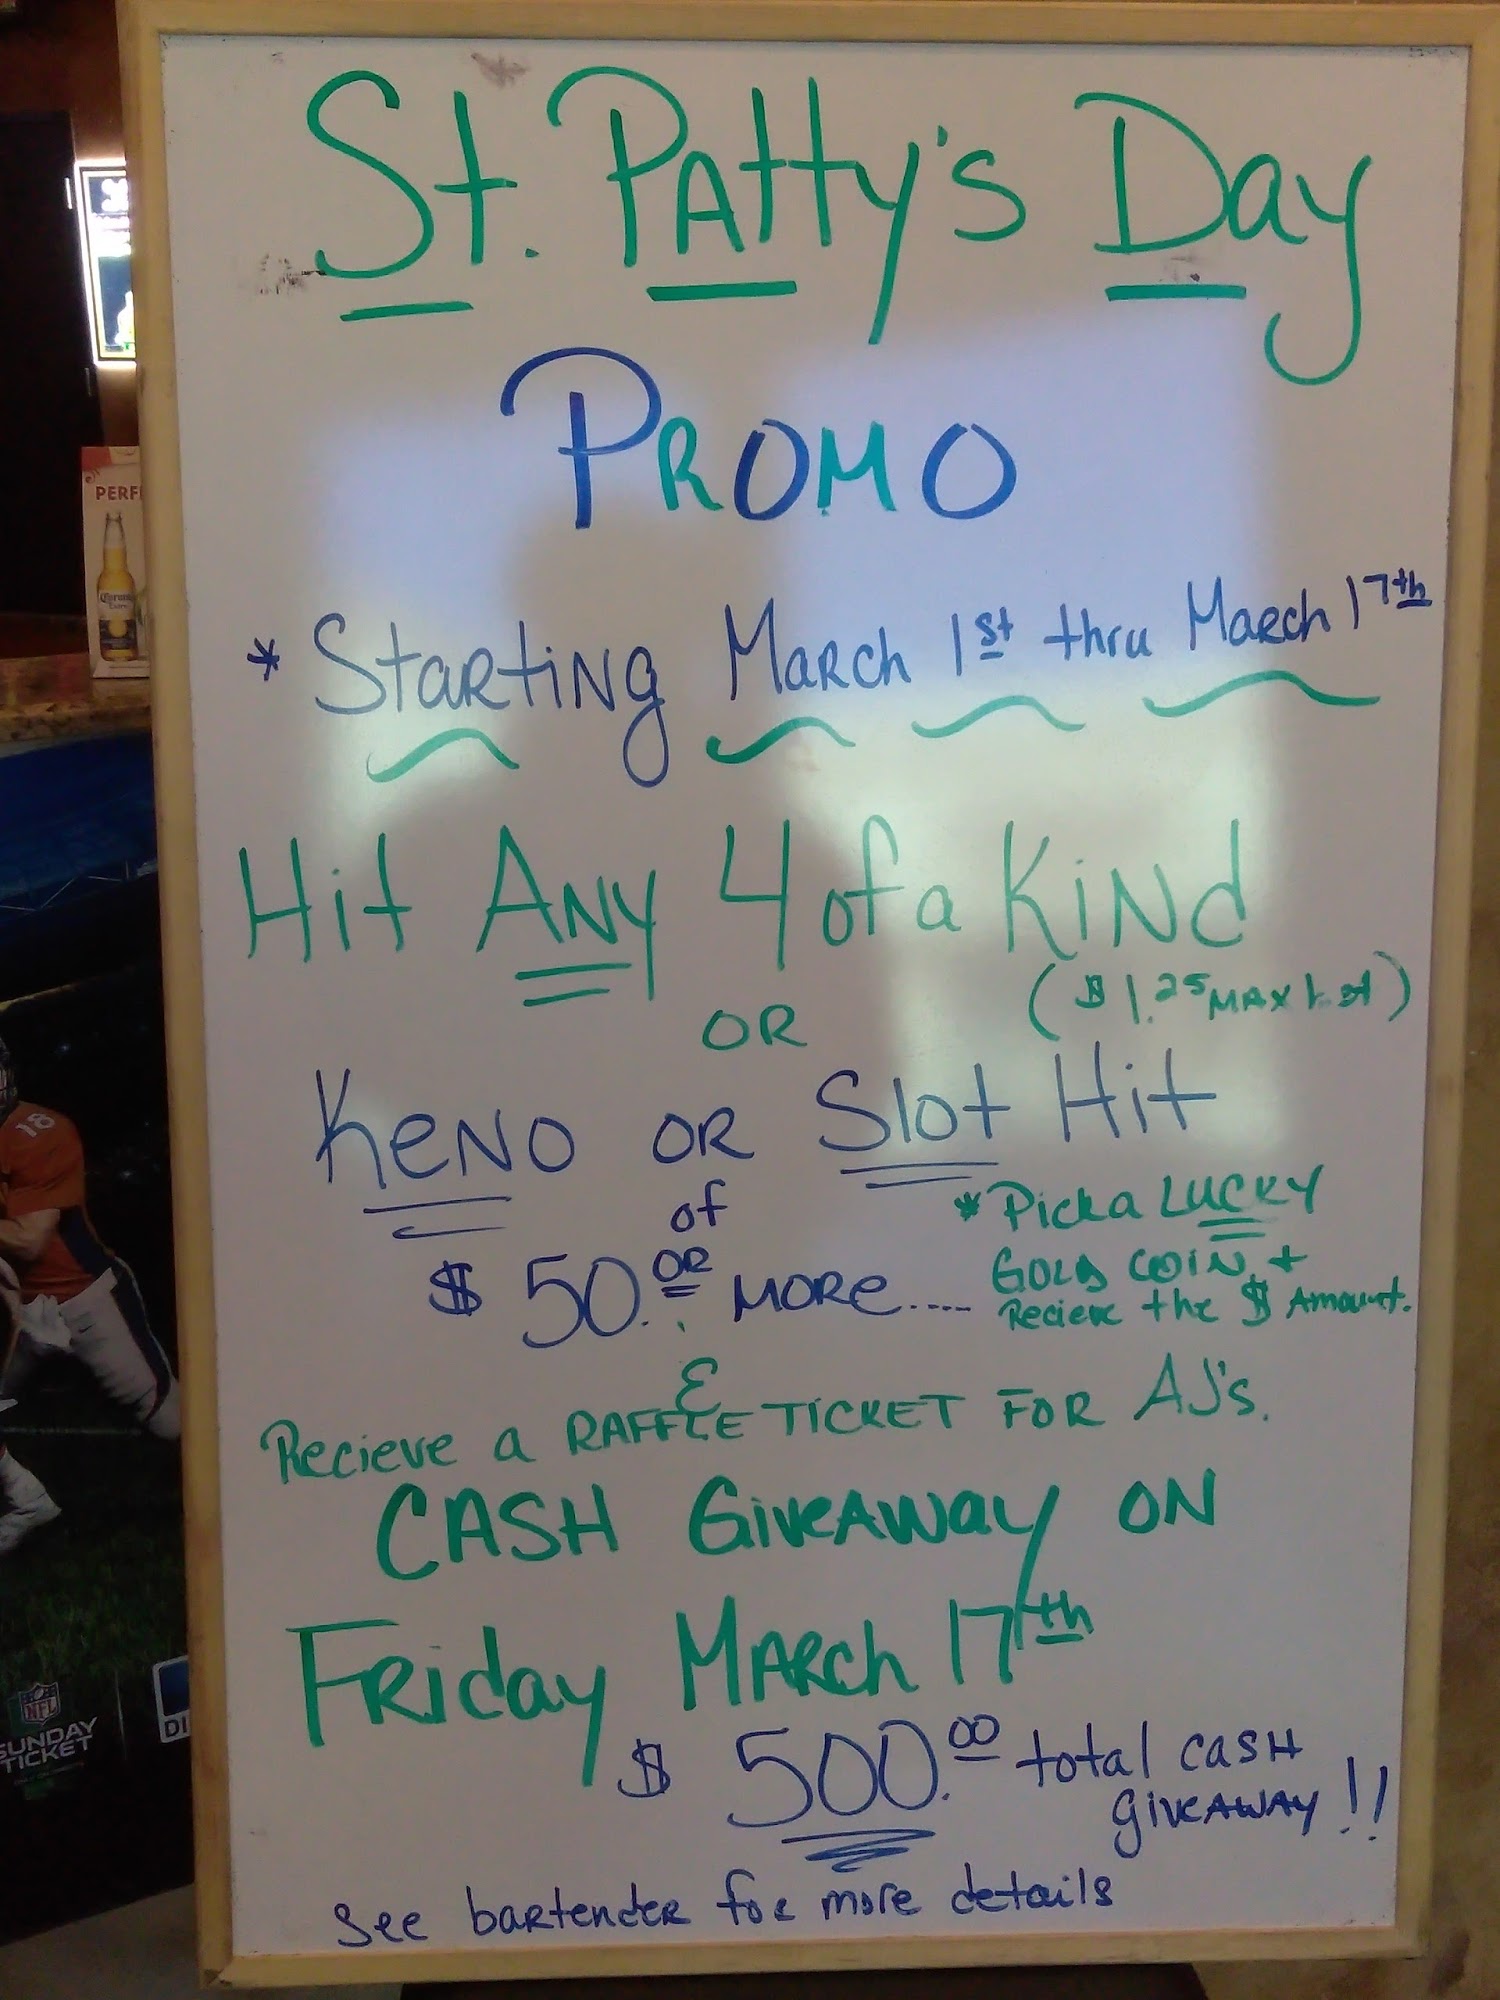 St. Patty's Day
Promo
* Starting March 1st thru March 17th
Hit Any 4 of a Kind
($1.25 Max bet)
OR
Keno OR Slot Hit
of
$50. OR MORE.....
*Pick a LUCKY
GOLD COIN +
Recieve the $ Amount.
&
Recieve a RAFFLE TICKET FOR AJ's.
CASH GiveAway ON
Friday March 17th
$500.00 total cash
giveaway!!
See bartender for more details
PERF
Corona
Extra
18
NFL
SUNDAY
TICKET
DI